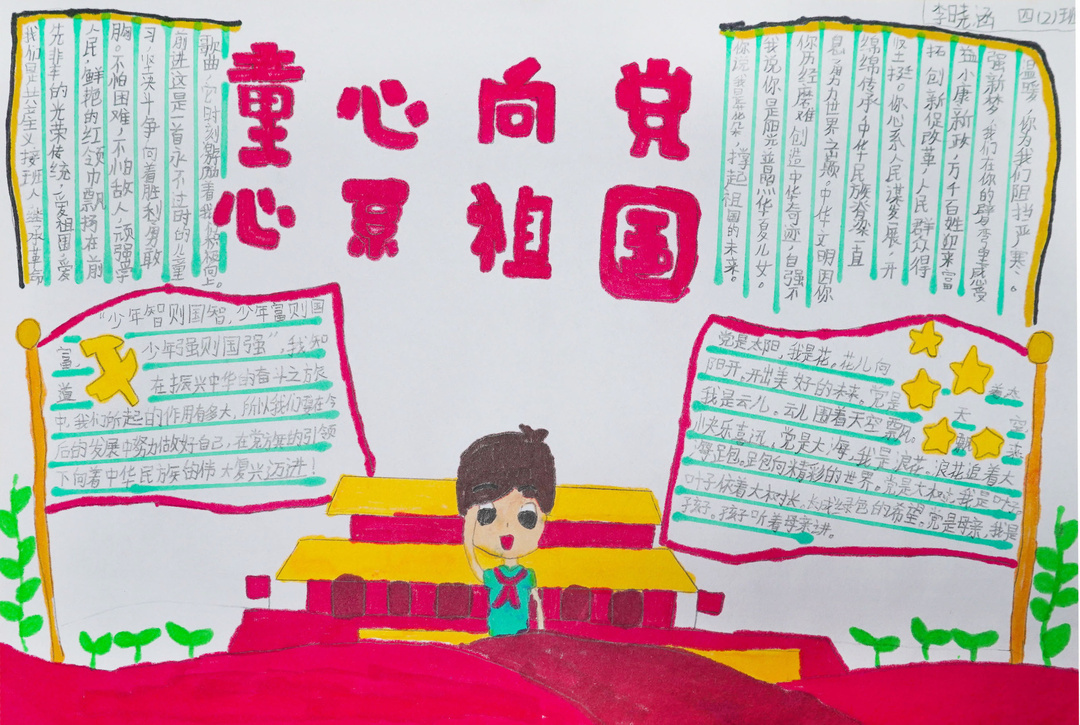 李晓涵 四(2)班
童心向党
心系祖国
温暖，你为我们阻挡严寒。
强新梦，我们在你的臂弯里感受
益小康新政，万千百姓迎来富
拓创新促改革，人民群众得
坚土挺。你心系人民谋发展，开
绵绵传承，中华民族脊梁一直
息，努力世界之巅。中华文明因你
你历经磨难，创造中华奇迹，自强不
我说你是阳光，普照华夏儿女。
你说我是花朵，撑起祖国的未来。
歌曲，它时刻激励着我积极向上。
前进这是一首永不过时的儿童
习，坚决斗争，向着胜利勇敢
胸。不怕困难，不怕敌人，顽强学
人民，鲜把的红领巾飘扬在前
先辈的光荣传统，爱祖国，爱
我们是共产主义接班人，继承革命
“少年智则国智，少年富则国
富，少年强则国强”，我知
道 在振兴中华的奋斗之旅
中，我们所起的作用有多大，所以我们要在今
后的发展中努力做好自己，在党方旗的引领
下向着中华民族的伟大复兴迈进！
党是太阳，我是花。花儿向
阳开，开出美好的未来。党是 着太
我是云儿。云儿围着天空飘 天 空
快乐喜迅，党是大海，我是浪花。浪花追着大
海足包，足包向精彩的世界。党是大树，我是叶子
叶子依着大树长，长成绿色的希望。党是母亲，我是
孩子。孩子听着母亲讲。